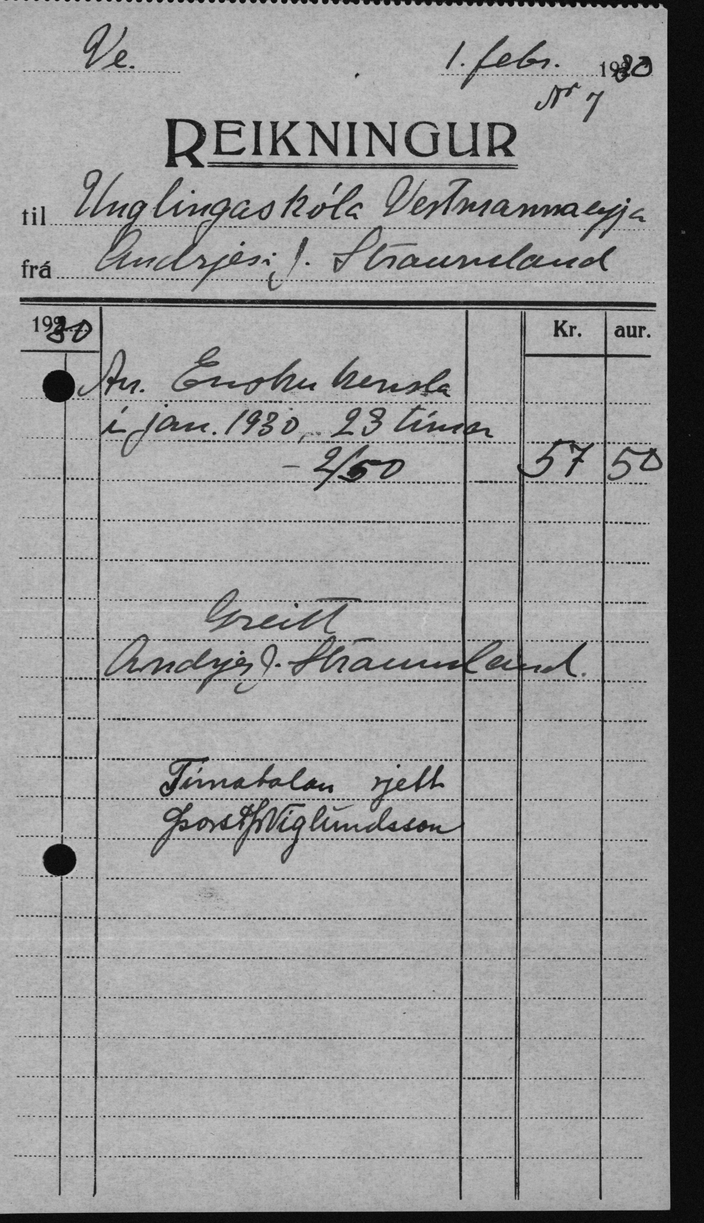 Ve. 1. febr. 1930
Nr 7
REIKNINGUR
til Unglingaskóla Vestmannaeyja
frá Andrjesi J. Straumland
1930 Kr. aur.
An. Ensku kensla
í jan. 1930, 23 tímar
- 2/50 57 50
Greitt
Andrjes J. Straumland.
Tímatalan rjett
Þorst Þ Víglundsson